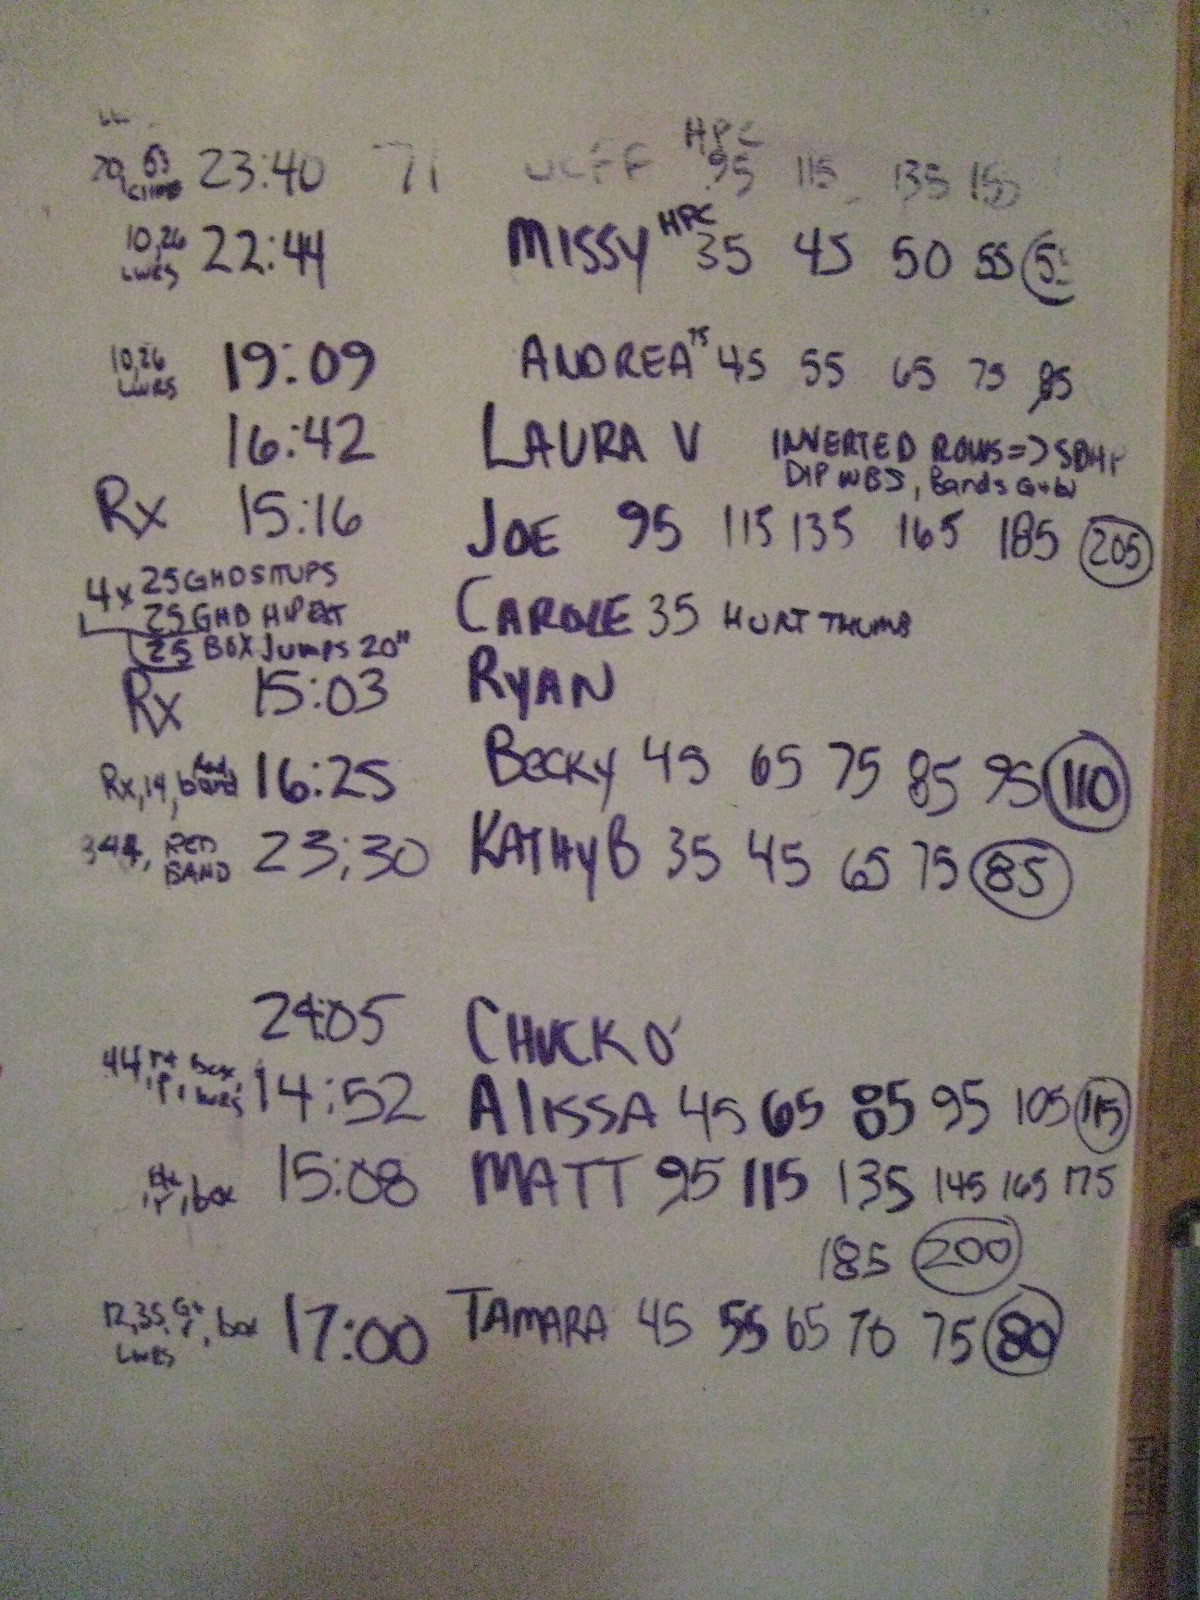 23:40 71 JEFF HPC 95 115 135 155
10,26 LWRS 22:44 MISSY HPC 35 45 50 55
10,26 LWRS 19:09 ANDREA 75 45 55 65 75 85
16:42 LAURA V INVERTED ROWS=>SDHP
DIP WBS, Bands G+W
Rx 15:16 JOE 95 115 135 165 185 205
4x 25 GHD SITUPS
25 GHD HIPEXT CAROLE 35 HURT THUMB
25 BOX Jumps 20"
Rx 15:03 RYAN
Rx, 14, Red band 16:25 BECKY 45 65 75 85 95 110
RED BAND 23:30 KATHY B 35 45 65 75 85
24:05 CHUCK O'
44, box, LWRS 14:52 ALISSA 45 65 85 95 105 115
box 15:08 MATT 95 115 135 145 165 175
185 200
12,35, G+ box LWRS 17:00 TAMARA 45 55 65 70 75 80